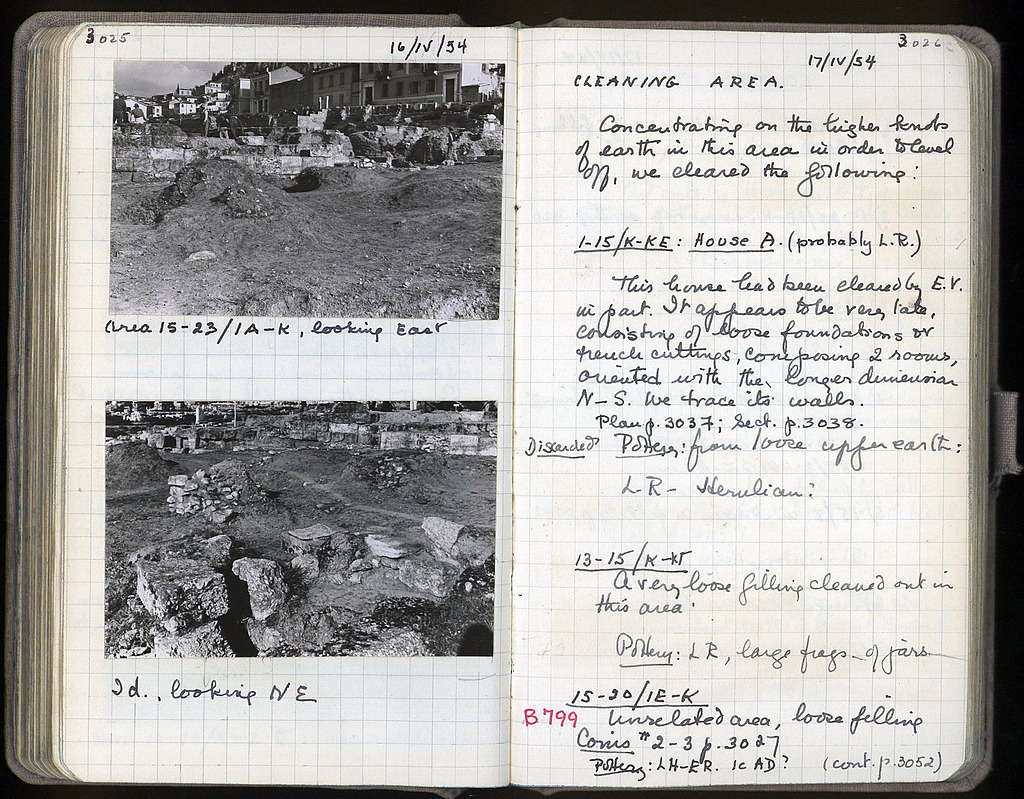 3025
16/IV/54
Area 15-23/IA-K, looking East
Id., looking NE
3026
17/IV/54
CLEANING AREA.
Concentrating on the higher knobs
of earth in this area in order to level
off, we cleared the following:
1-15/K-KE: House A. (probably L.R.)
This house had been cleared by E.V.
in part. It appears to be very late,
consisting of loose foundations or
trench cuttings, composing 2 rooms,
oriented with the longer dimension
N-S. We trace its walls.
Plan p. 3037; Sect. p. 3038.
Discarded Pottery: from loose upper earth:
L-R- Herulian?
13-15/K-
A very loose filling cleaned out in
this area.
Pottery: LR, large frags_of jars
15-20/IE-K
B 799 Unrelated area, loose filling
Coins #2-3 p. 3027
Pottery: LH-ER. 1c AD? (cont. p. 3052)